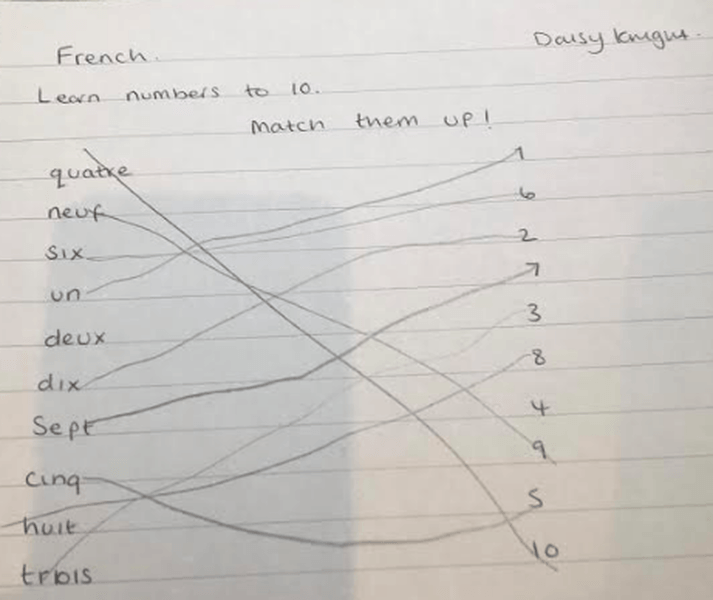 Daisy Knight.
French.
Learn numbers to 10.
Match them up!
quatre 1
neuf 6
six 2
un 7
deux 3
dix 8
Sept 4
cinq 9
huit 5
trois 10